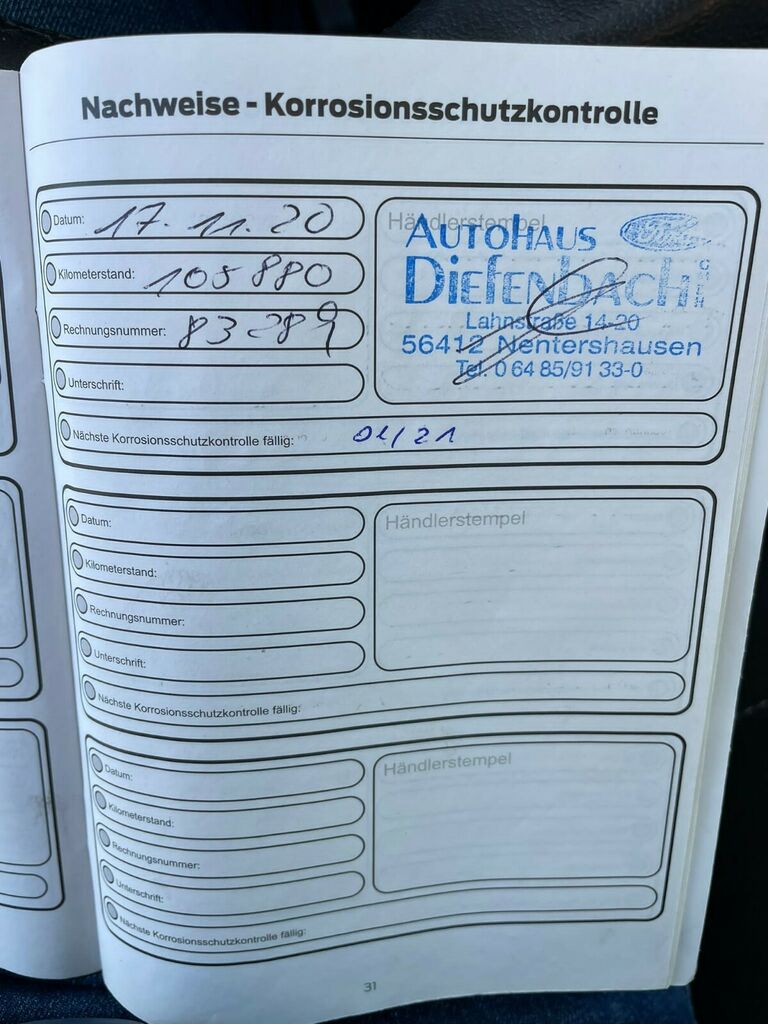 Nachweise - Korrosionsschutzkontrolle
Datum: 17.11.20
Kilometerstand: 105880
Rechnungsnummer: 83289
Unterschrift:
Händlerstempel
AUTOHAUS Ford
DIEFENBACH GMBH
Lahnstraße 14-20
56412 Nentershausen
Tel. 0 64 85/91 33-0
Nächste Korrosionsschutzkontrolle fällig: 04/21
Datum:
Kilometerstand:
Rechnungsnummer:
Unterschrift:
Händlerstempel
Nächste Korrosionsschutzkontrolle fällig:
Datum:
Kilometerstand:
Rechnungsnummer:
Unterschrift:
Händlerstempel
Nächste Korrosionsschutzkontrolle fällig:
31